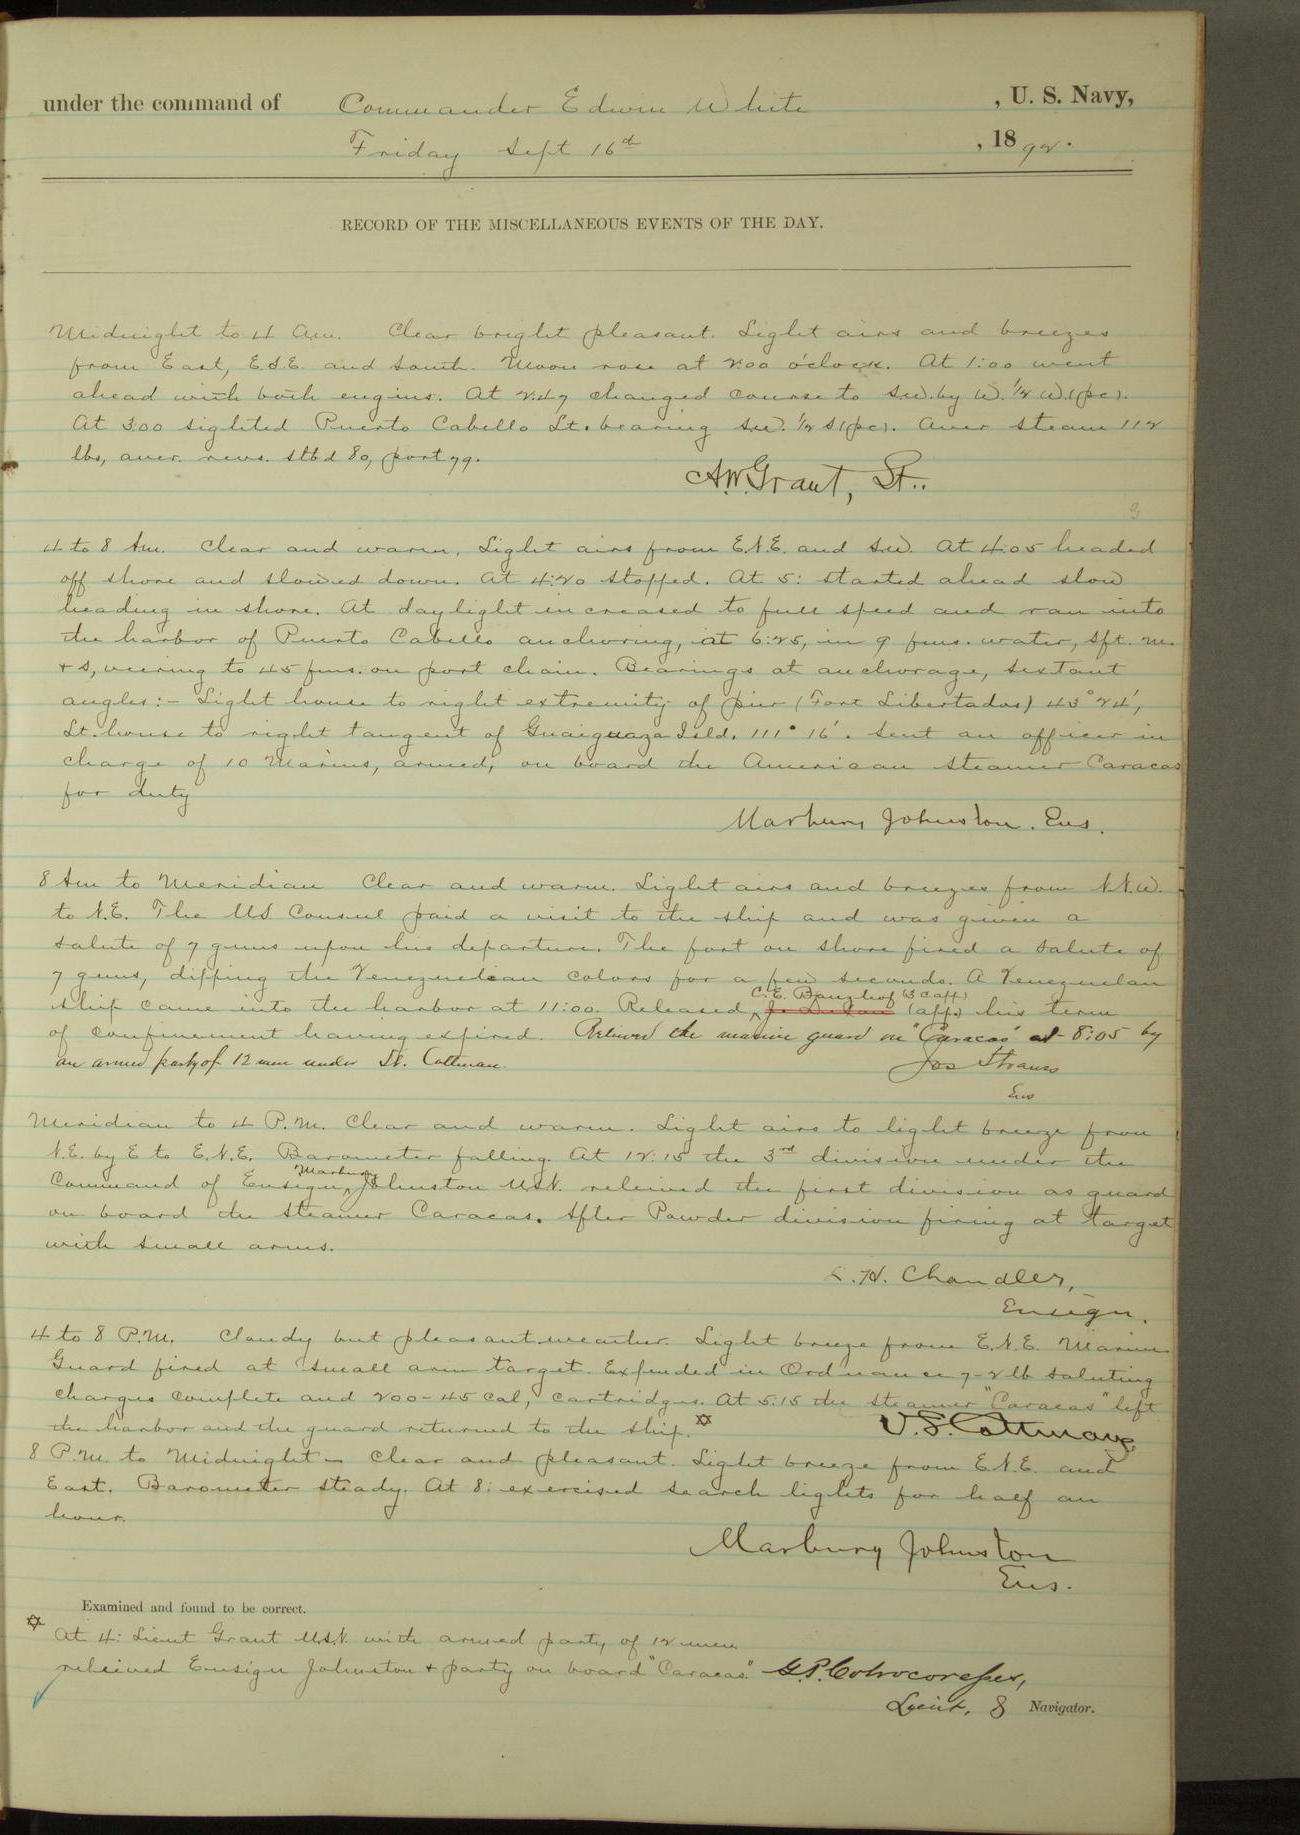 under the command of Commander Edwin White , U. S. Navy,
Friday Sept 16th , 1892.
RECORD OF THE MISCELLANEOUS EVENTS OF THE DAY.
Midnight to 4 Am. Clear bright pleasant. Light airs and breezes
from East, E.S.E. and South. Moon rose at 2:00 o'clock. At 1:00 went
ahead with both engins. At 2:47 changed course to S.W. by W. 1/2 W. (p.c.).
At 3:00 sighted Puerto Cabello Lt. bearing S.W. 1/2 S (p.c.). Aver steam 112
lbs, aver. revs. stbd 80, port 79.
A.W. Grant, Lt..
4 to 8 Am. Clear and warm, Light airs from E.N.E. and S.W. At 4:05 headed
off shore and slowed down. At 4:20 stopped. At 5: started ahead slow
heading in shore. At daylight increased to full speed and ran into
the harbor of Puerto Cabello anchoring, at 6:25, in 9 fms. water, sft. m.
+ s, veering to 45 fms. on port chain. Bearings at anchorage, sextant
angles:- Light house to right extremity of pier (Fort Libertador) 43° 24',
Lt. house to right tangent of Guaiguaza Isld. 111° 16'. Sent an officer in
charge of 10 Marins, armed, on board the American Steamer Caracas
for duty
Marbury Johnston. Ens.
8 Am to Meridian Clear and warm. Light airs and breezes from N.N.W.
to N.E. The U.S. Consul paid a visit to the ship and was given a
salute of 7 guns upon his departure. The fort on shore fired a salute of
7 guns, dipping the Venezuelean colors for a few seconds. A Venezuelan
C.E. Banzhof (3 c aff)
ship came into the harbor at 11:00. Released (app.) his term
of confinement having expired. Relieved the marine guard on "Caracas" at 8:05 by
an armed party of 12 men under Lt. Cottman.
Jos Strauss
Ens
Meridian to 4 P.M. Clear and warm. Light airs to light breeze from
N.E. by E to E.N.E. Barometer falling. At 12:15 the 3rd division under the
Command of Ensign Marbury Johnston U.S.N. relieved the first division as guard
on board the steamer Caracas. After Powder division firing at target
with small arms.
L.H. Chandler,
Ensign.
4 to 8 P.M. Cloudy but pleasant weather. Light breeze from E.N.E. Marine
Guard fired at small arm target. Expended in Ordnance 7-2lb saluting
charges complete and 200-45 cal, cartridges. At 5.15 the steamer "Caracas" left
the harbor and the guard returned to the ship. ✡
V.S. Cottman
8 P.M. to Midnight - Clear and pleasant. Light breeze from E.N.E. and
East. Barometer steady. At 8: exercised search lights for half an
hour.
Marbury Johnston
Ens.
Examined and found to be correct.
✡ At 4: Lieut Grant U.S.N. with armed party of 12 men
releived Ensign Johnston + party on board "Caracas".
G.P. Colvocoresses,
Lieut. & Navigator.